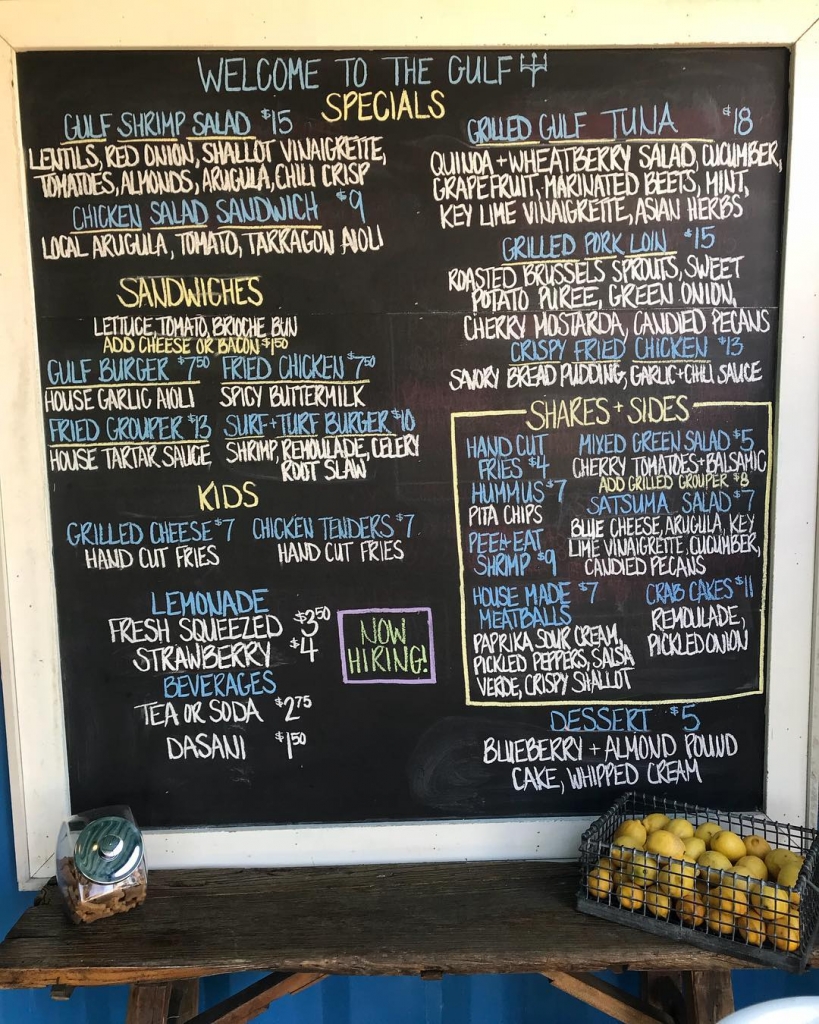 WELCOME TO THE GULF
SPECIALS
GULF SHRIMP SALAD $15
LENTILS, RED ONION, SHALLOT VINAIGRETTE,
TOMATOES, ALMONDS, ARUGULA, CHILI CRISP
CHICKEN SALAD SANDWICH $9
LOCAL ARUGULA, TOMATO, TARRAGON AIOLI
SANDWICHES
LETTUCE, TOMATO, BRIOCHE BUN
ADD CHEESE OR BACON $1.50
GULF BURGER $7.50
HOUSE GARLIC AIOLI
FRIED CHICKEN $7.50
SPICY BUTTERMILK
FRIED GROUPER $13
HOUSE TARTAR SAUCE
SURF + TURF BURGER $10
SHRIMP, REMOULADE, CELERY
ROOT SLAW
KIDS
GRILLED CHEESE $7
HAND CUT FRIES
CHICKEN TENDERS $7
HAND CUT FRIES
LEMONADE
FRESH SQUEEZED $3.50
STRAWBERRY $4
BEVERAGES
TEA OR SODA $2.75
DASANI $1.50
NOW
HIRING!
GRILLED GULF TUNA $18
QUINOA + WHEATBERRY SALAD, CUCUMBER,
GRAPEFRUIT, MARINATED BEETS, MINT,
KEY LIME VINAIGRETTE, ASIAN HERBS
GRILLED PORK LOIN $15
ROASTED BRUSSELS SPROUTS, SWEET
POTATO PUREE, GREEN ONION,
CHERRY MOSTARDA, CANDIED PECANS
CRISPY FRIED CHICKEN $13
SAVORY BREAD PUDDING, GARLIC + CHILI SAUCE
SHARES + SIDES
HAND CUT
FRIES $4
HUMMUS $7
PITA CHIPS
PEEL + EAT
SHRIMP $9
HOUSE MADE $7
MEATBALLS
PAPRIKA SOUR CREAM,
PICKLED PEPPERS, SALSA
VERDE, CRISPY SHALLOT
MIXED GREEN SALAD $5
CHERRY TOMATOES + BALSAMIC
ADD GRILLED GROUPER $8
SATSUMA SALAD $7
BLUE CHEESE, ARUGULA, KEY
LIME VINAIGRETTE, CUCUMBER,
CANDIED PECANS
CRAB CAKES $11
REMOULADE,
PICKLED ONION
DESSERT $5
BLUEBERRY + ALMOND POUND
CAKE, WHIPPED CREAM